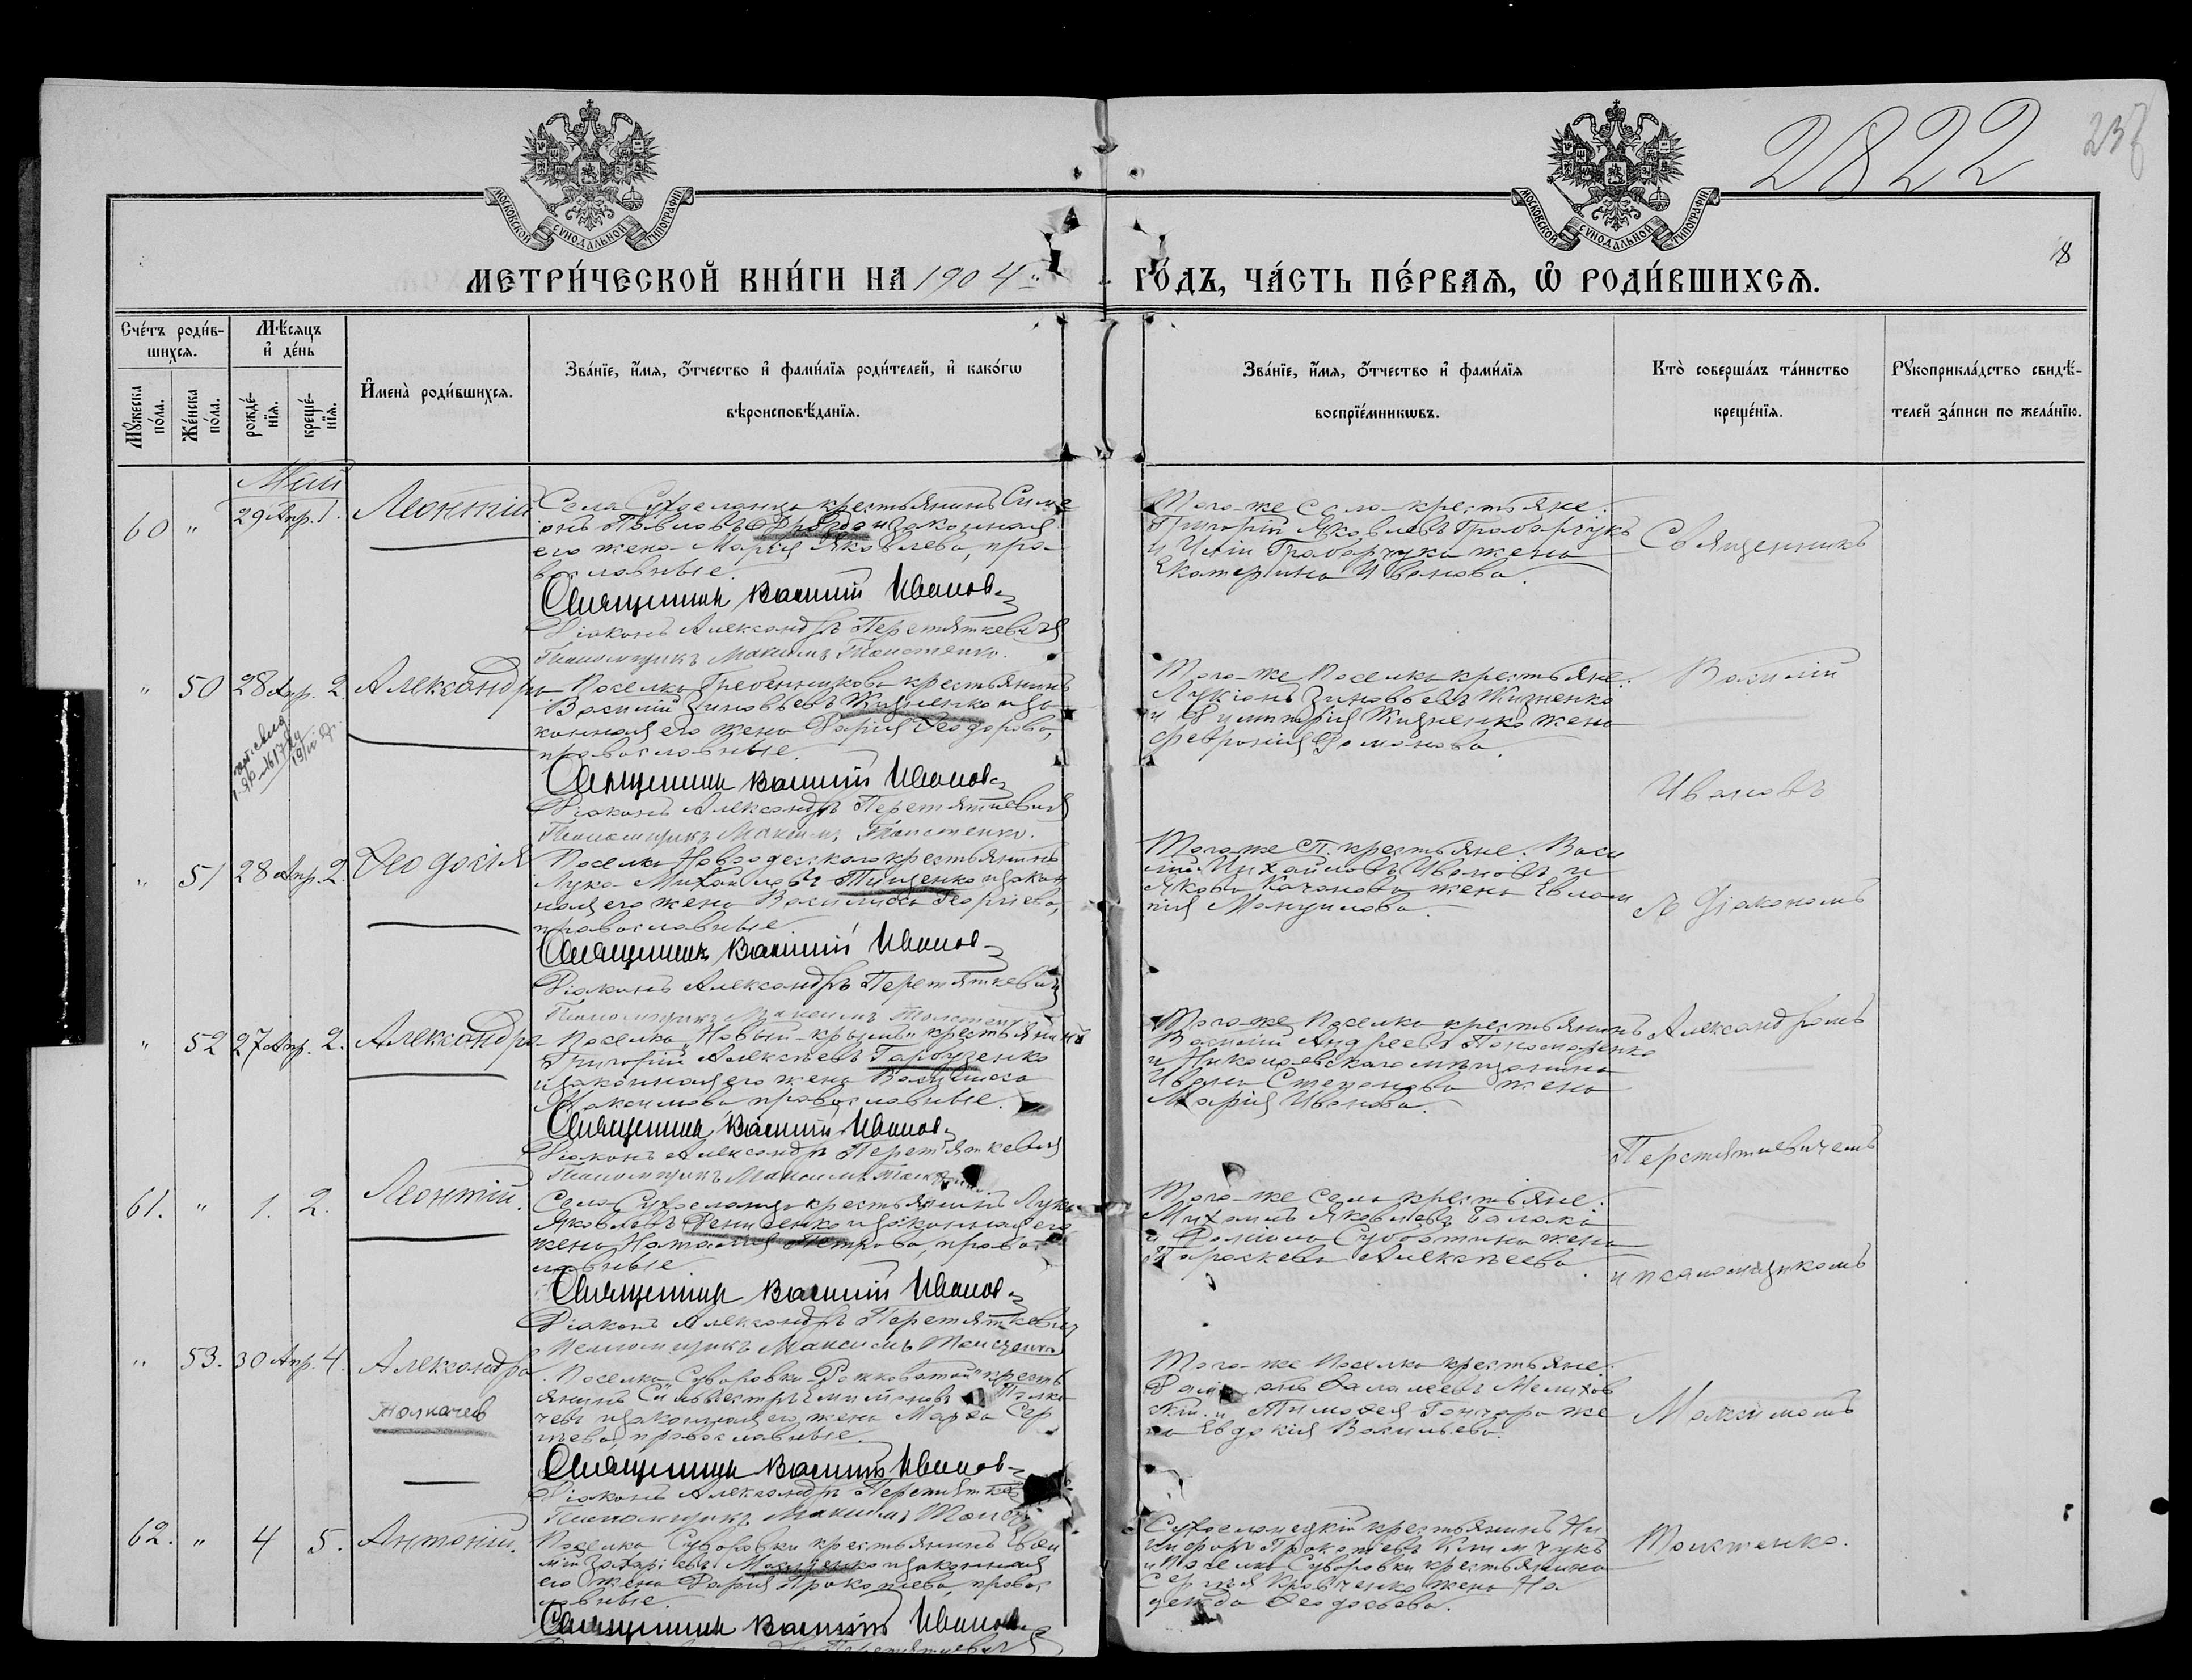 2822
237
18
МОСКОВСКОЙ СѴНОДАЛЬНОЙ ТИПОГРАФІИ
МОСКОВСКОЙ СѴНОДАЛЬНОЙ ТИПОГРАФІИ
МЕТРИ́ЧЕСКОЙ КНИ́ГИ НА 1904 ГО́ДЪ, ЧА́СТЬ ПЕ́РВАѦ, Ѽ РОДИ́ВШИХСѦ.
Сче́тъ роди́вшихсѧ.
Мꙋ́жеска по́ла.
Же́нска по́ла.
Мѣ́сѧцъ и҆ де́нь
рожде́нїѧ.
креще́нїѧ.
И҆мена̀ роди́вшихсѧ.
Зва́нїе, и҆́мѧ, ѻ҆́тчество и҆ фами́лїѧ роди́телей, и҆ како́гѡ
вѣроисповѣ́данїѧ.
Зва́нїе, и҆́мѧ, ѻ҆́тчество и҆ фами́лїѧ
воспрїе́мникѡвъ.
Кто̀ соверша́лъ та́инство
креще́нїѧ.
Рꙋкоприкла́дство свидѣ́-
телей за́писи по жела́нїю.
Май
60 " 29 Апр. 1. Леонтій
Села Сухоеланца крестьянинъ Симе
онъ Павловъ Дрозда и законная
его жена Марія Яковлева, пра-
вославные.
Священникъ Василій Ивановъ
Діаконъ Александръ Перетяткевичъ
Псаломщикъ Максимъ Толстенко.
Того-же села крестьяне:
Григорій Яковлевъ Грабарчукъ
и Иліи Грабарчука жена
Екатерина Иванова.
Священникъ
" 50 28 Апр. 2. Александра
Поселка Гребенникова крестьянинъ
Василій Зиновьевъ Жизненко и за-
конная его жена Дарія Ѳеодорова,
православные.
Священникъ Василій Ивановъ
Діаконъ Александръ Перетяткевичъ
Псаломщикъ Максимъ Толстенко.
Того-же поселка крестьяне:
Лукіанъ Зиновьевъ Жизненко
и Димитрія Жизненко жена
Февронія Романова.
Василій
Ивановъ
" 51 28 Апр. 2. Ѳеодосія
Поселка Новоодесскаго крестьянинъ
Лука Михайловъ Тищенко и закон
ная его жена Василисса Георгіева,
православные.
Священникъ Василій Ивановъ
Діаконъ Александръ Перетяткевичъ
Псаломщикъ Максимъ Толстенко
Того же п. крестьяне: Васи
лій Михайловъ Ивановъ и
Якова Качанова жена Евлам
пія Мануилова.
съ Діакономъ
" 52 27 Апр. 2. Александра
Поселка "Новый-крымъ" крестьянинъ
Григорій Алексѣевъ Гарбузенко
и законная его жена Василисса
Максимова православные.
Священникъ Василій Ивановъ
Діаконъ Александръ Перетяткевичъ
Псаломщикъ Максимъ
Того-же поселка крестьянинъ
Василій Андреевъ Пономаренко
и Николаевскаго мѣщанина
Ивана Степанова жена
Марія Иванова.
Александромъ
Перетяткевичемъ
61. " 1. 2. Леонтій.
Села Сухоеланца крестьянинъ Лука
Яковлевъ Денисенко и законная его
жена Наталія Петрова, правос
лавные
Священникъ Василій Ивановъ
Діаконъ Александръ Перетяткевичъ
Псаломщикъ Максимъ Толстенко
Того-же села крестьяне:
Михаилъ Яковлевъ
и Даніила Суботина жена
Параскева Алексѣева.
и псаломщикомъ
" 53. 30 Апр. 4. Александра
Толкачев
Поселка Суворовки-Рожковатой" кресть
янинъ Сильвестръ Емиліановъ Толка
чевъ и законная его жена Марѳа Сер
гіева, православные.
Священникъ Василій Ивановъ
Діаконъ Александръ
Псаломщикъ Максимъ
Того-же поселка крестьяне:
и Тимоѳея Гончара же
на Евдокія Васильева.
Максимомъ
62. " 4 5. Антоній.
Поселка Суворовки крестьянинъ
Захаріевъ и законная
его жена Дарія Прокопіева, правос
лавные.
Священникъ Василій Ивановъ
Сухоеланецкій крестьянинъ Ни
кифоръ Прокопіевъ Климчукъ
и поселка Суворовки крестьянина
Сергія Кравченко жена На
дежда Ѳеодосьева.
Толстенко.